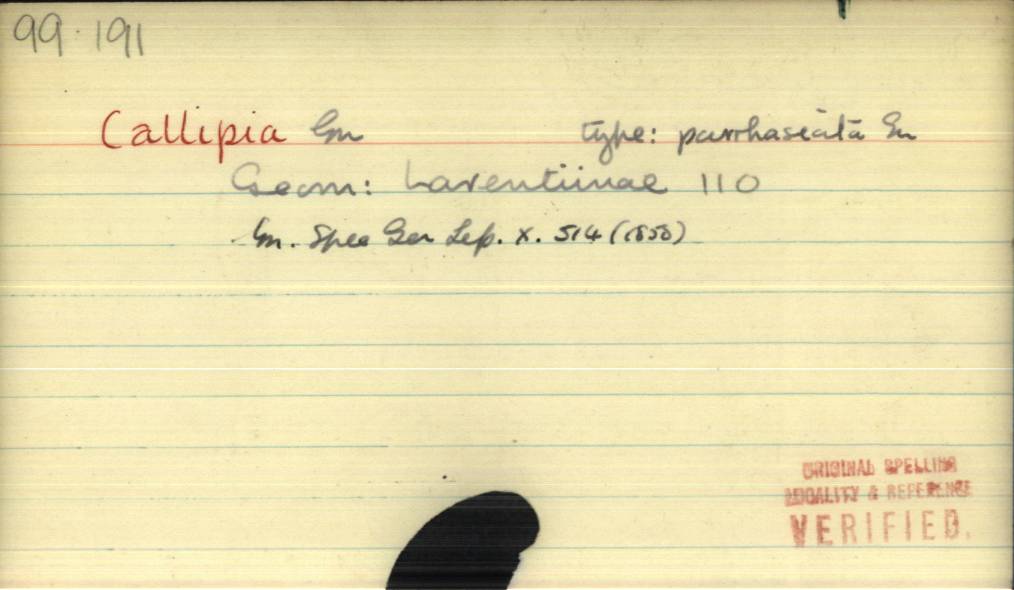 99.191
Callipia Gn type: parrhasiata Gn
Geom: Larentiinae 110
Gn. Spec Gen Lep. X. 514 (1858)
ORIGINAL SPELLING
LOCALITY & REFERENCE
VERIFIED.